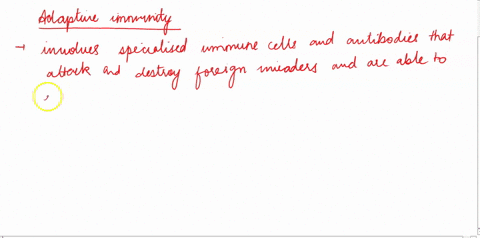 Adaptive immunity
→ involves specialised immune cells and antibodies that
attack and destroy foreign invaders and are able to